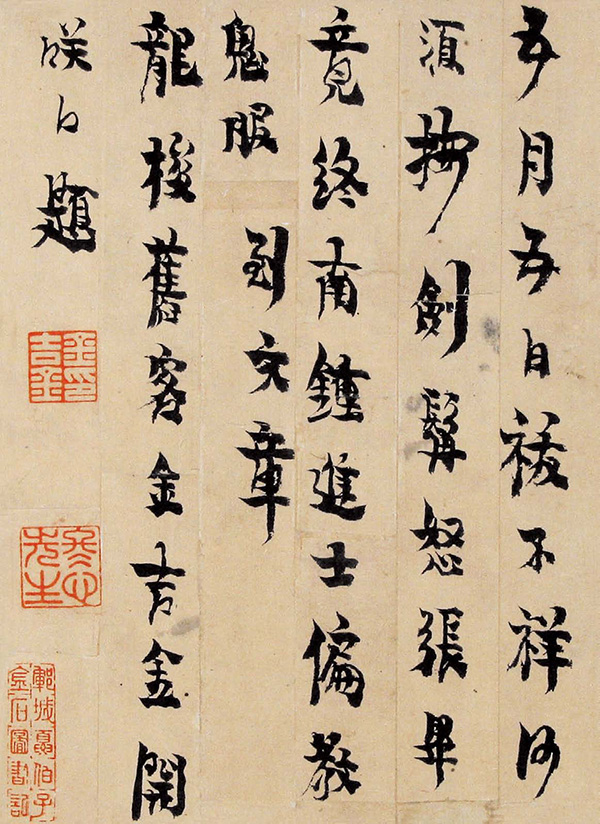 五月五日祓不祥何
須按劍髯怒張畢
竟終南鍾進士偏教
鬼服到文章
龍梭舊客金吉金開
日題
金吉金印
冬心先生
城聶伯子
金石圖書記